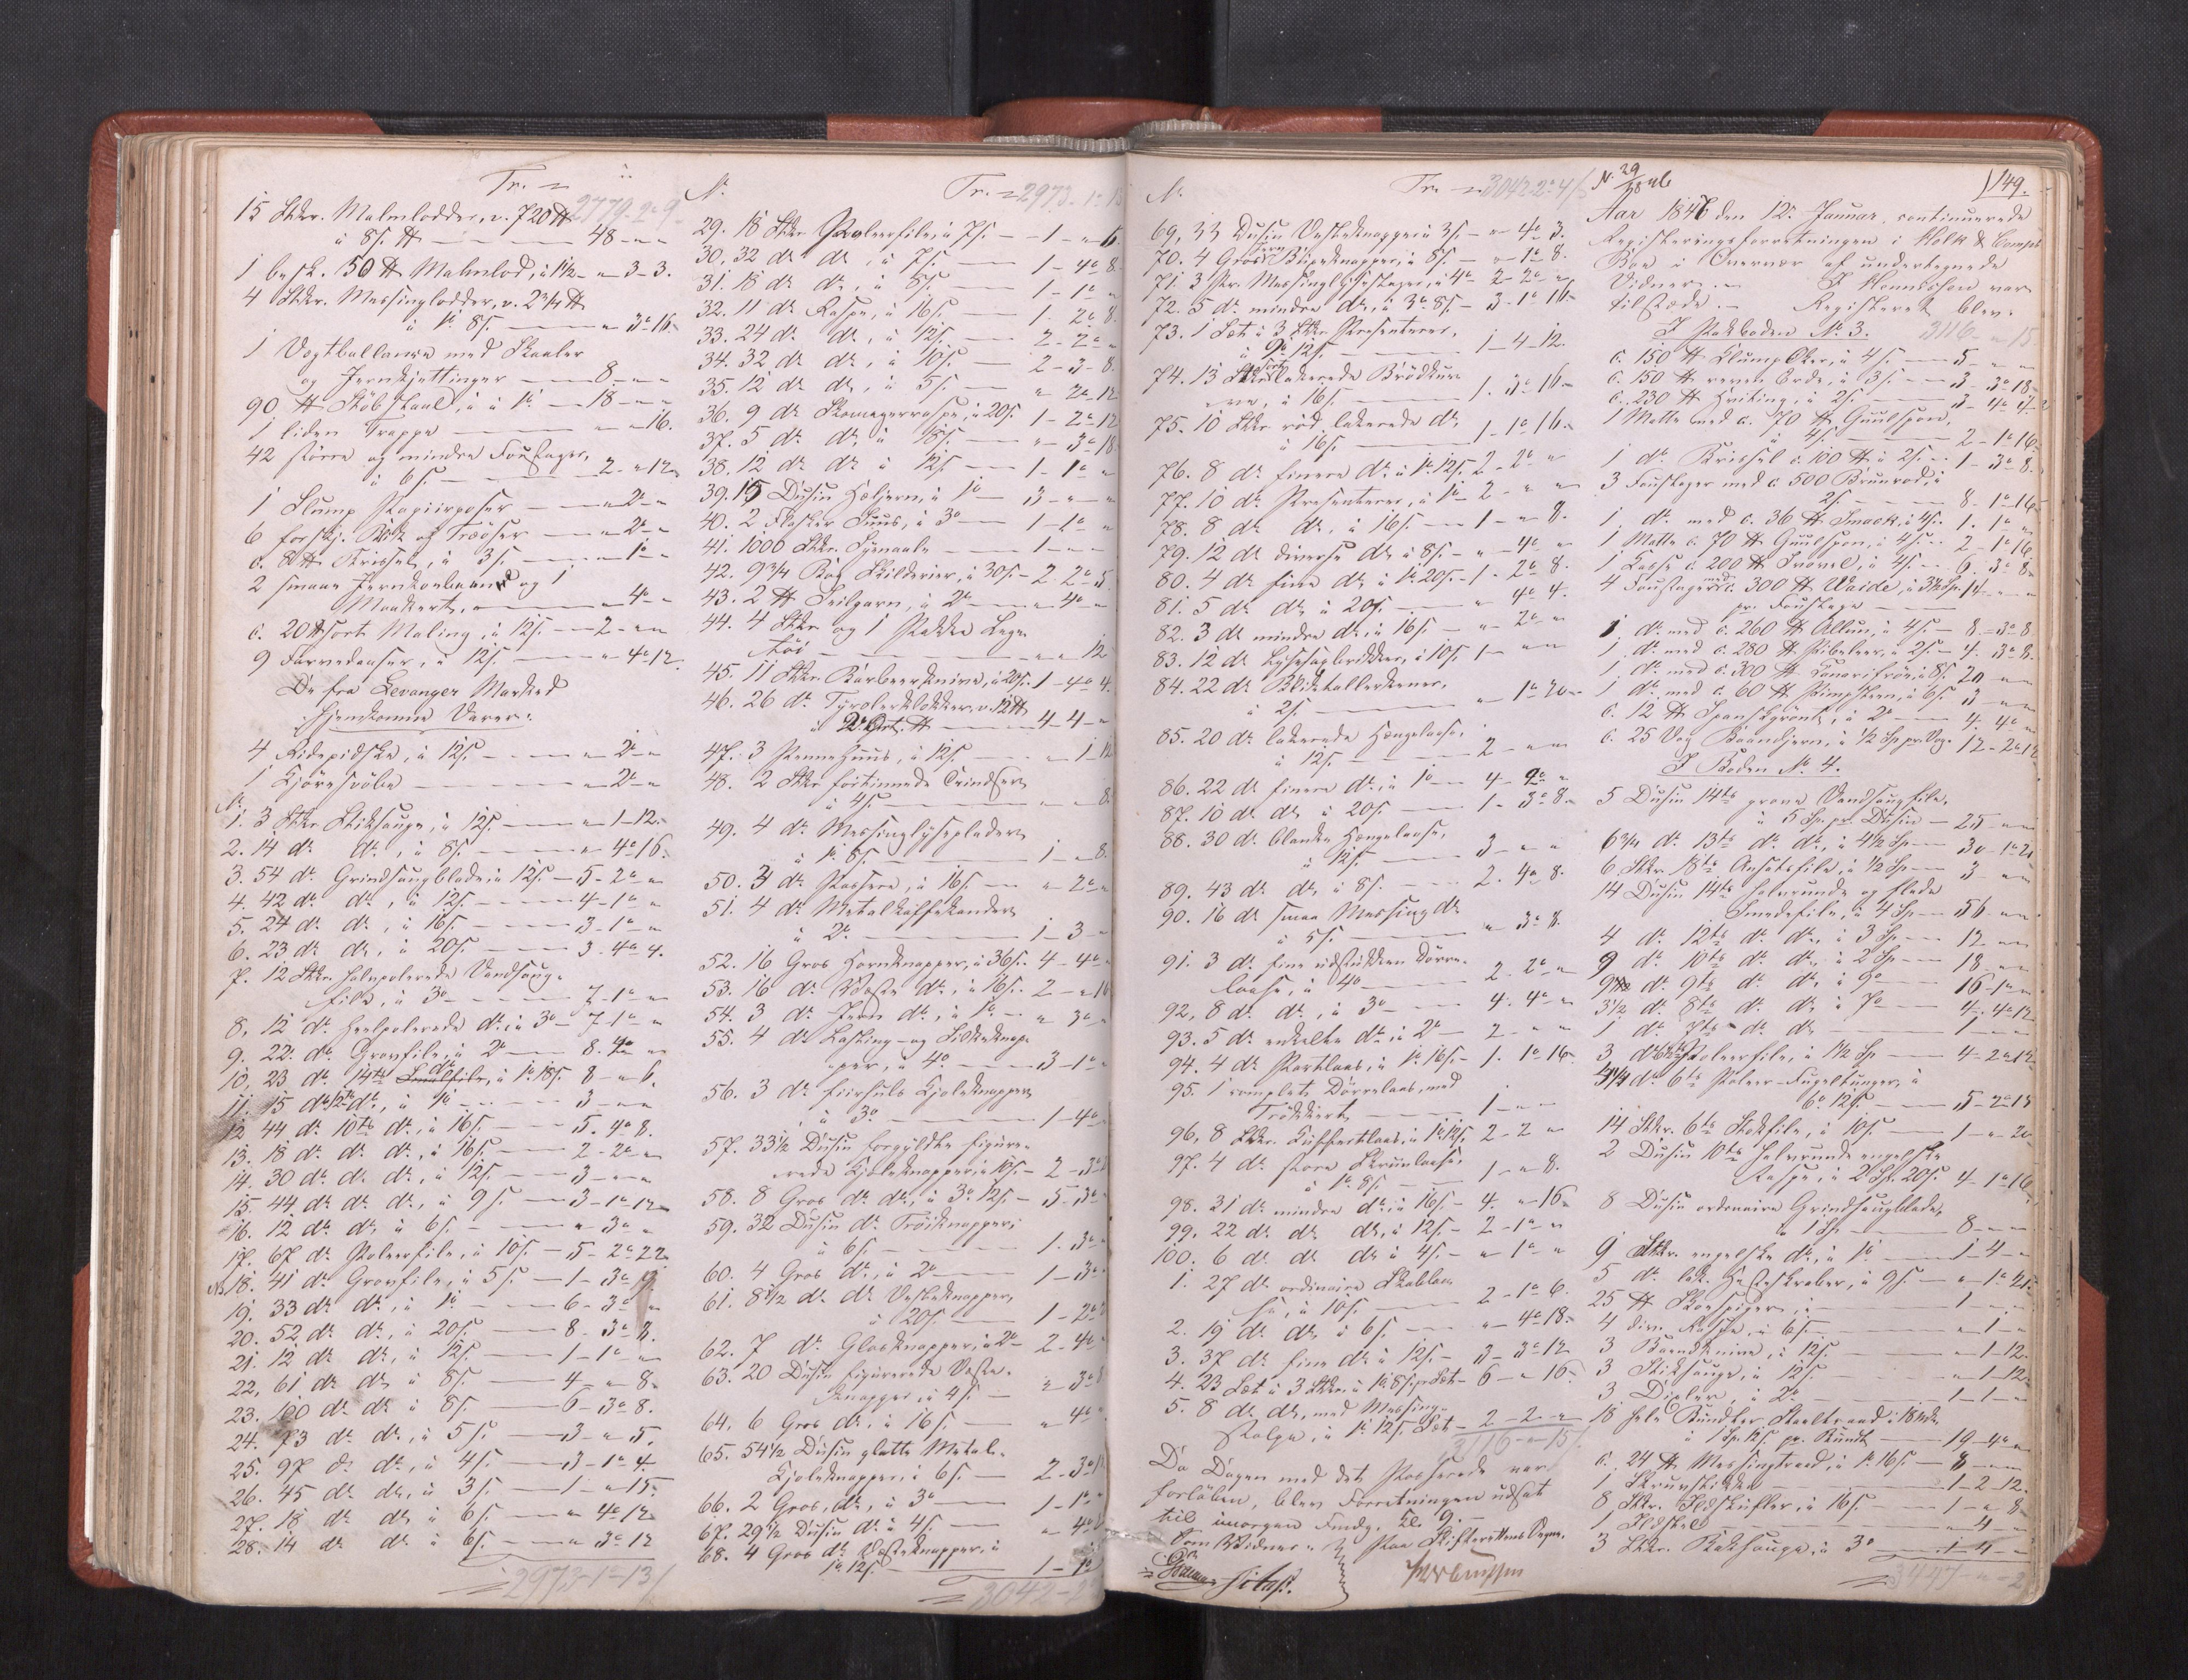 Tr. = 2779-2-9
15 Stkr. Malmlodder, v. 720 ℔
à 8 s. ℔ — 48 - " - "
1 besk. 50 ℔ Malmlod, à 1½ - " - 3 - 3.
4 Stkr. Messinglodder, v. 2¾ ℔
1 Vogtballance med Skaaler
og Jernkjettinger — 8 - " - "
90 ℔ Stöbstaal, à — 18 - " - "
1 liden Trappe — " - " 16.
42 större og mindre Foustager,
à 6 s. — 2 - " 12
1 Slump Papiirposer — " 2 - "
6 forskj. Blik og Træöser — " 2 - "
c. 8 ℔ Krissel, à 3 s. — " 1 - "
2 smaae
c. 20 ℔ sort Maling, à 12 s. — 2 - " - "
9 Farvedaaser, à 12 s. — " 4 12.
De fra Levanger Marked
hjemkomne Varer:
4 Ridepidske, à 12 s. — " 2 - "
1 Kjöresvöbe — " 2 - "
No.
1. 3 Stkr. Stiksauge, à 12 s. — " 1 - 12.
2. 14 do. do., à 8 s. — " 4 16.
3. 54 do. Grindsaugblade à 12 s. — 5 - 2 - "
4. 42 do. do., à 12 s. — 4 - 1 - "
5. 24 do. do., à 16 s. — 3 - 1 - "
6. 23 do. do., à 20 s. — 3. 4 4.
7. 12 Stkr. halvpolerede Vandsaug-
file, à 3 — 7 - 1 - "
8. 12 do. heelpolerede do. à 3 — 7 - 1 - "
9. 22 do. Grovfile, à 2 — 8. 4 - "
10. 23 do. 14to. do., à 1. 18 s. 8 - " 6.
11. 15 do. 12to. do., à 1 — 3 - " - "
12. 44 do. 10to. do., à 16 s. — 5. 4 8.
13. 18 do. do. do., à 16 s. — 2 - 2 - "
14. 30 do. do. do., à 12 s. — 3 - " - "
15. 44 do. do. do., à 9 s. — 3 - 1 - 12
16. 12 do. do., à 6 s. — " 3 - "
17. 67 do. Poleerfile, à 10 s. — 5 - 2 - 22
18. 41 do. Grovfile, à 5 s. — 1 - 3 - 19.
19. 33 do. do., à 1 — 6 - 3 - "
20. 52 do. do., à 20 s. — 8 - 3 - 8.
21. 12 do. do., à 12 s. — 1 - 1 - "
22. 61 do. do., à 8 s. — 4 - " 8
23. 100 do. do. à 8 s. — 6 - 3 8.
24. 73 do. do., à 5 s. — 3 - " 5.
25. 97 do. do., à 4 s. — 3 - 1 4.
26. 45 do. do., à 3 s. — 1 - " 15.
27. 18 do. do., à 6 s. — " 4 12
28. 14 do. do. à 6 s. — " 3 12
= 2973-1-13
No. Tr. = 2973-1-13
29. 18 Stkr. Poleerfile, à 7 s. — 1 - " 6.
30. 32 do. do., à 7 s. — 1 - 4 8.
31. 18 do. do., à 8 s. — 1 - 1 - "
32. 11 do. Raspe, à 16 s. — 1 - 2 8.
33. 24 do. do., à 12 s. — 2 - 2 - "
34. 32 do. do., à 10 s. — 2 - 3 - 8.
35. 12 do. do., à 5 s. — " 2 12
36. 9 do. Skomagerraspe, à 20 s. 1 - 2 - 12
37. 5 do. do. à 18 s. — " 3 18
38. 12 do. do. à 12 s. — 1 - 1 - "
39. 15 Dusin Hæljern, à 1 — 3 - " - "
40. 2 Flasker Snuus, à 3 — 1 - 1 - "
41. 1000 Stkr. Synaale — 1 - " - "
42. 9¾ Bog Skilderier, à 30 s. - 2. 2 5
43. 2 ℔ Seilgarn, à 2 — " 4 - "
44. 4 Stkr. og 1 Pakke Lege-
töi — " - " 12
45. 11 Stkr. Barbeerknive, à 20 s. - 1 - 4 4.
46. 26 do. Tyrolerklokker, v. 12 ℔
à 2 Ort. ℔ — 4 - 4 - "
47. 3 Pennehuus, à 12 s. — " 1 - 12
48. 2 Stkr. fortinnede
à 4 s. — " - " 8.
49. 4 do. Messinglyseplader
à 1. 8 s. — 1 - " 8.
50. 3 do. Passere, à 16 s. — " 2 - "
51. 4 do. Metalkaffekander
à 2. — 1 - 3 - "
52. 16 Gros Hornknapper, à 36 s. 4 - 4
53. 16 do. Veste do., à 16 s. 2 - " 16
54. 3 do. Jern do., à 1 — " 3 - "
55. 4 do. Lasting- og Silkeknap-
per, à 4 — 3 - 1 -
56. 3 do. Kjoleknapper
à 3 — 1 - 4
57. 33½ Dusin forgyldte figure-
rede Kjoleknapper à 10 s. - 2 - 3
58. 8 Gros do. do., à 3. 12 s. - 5 - 3
59. 32 Dusin do. Tröieknapper,
à 6 s. — 1. 3
60. 4 Gros do., à 2 — 1 - 3
61. 8½ do. do. Vesteknapper,
à 20 s. — 1 - 2
62. 7 do. Glasknapper, à 2 — 2 - 4
63. 20 Dusin figurerede Veste-
knapper, à 4 s. — " 3
64. 6 Gros do., à 16 s. — " 4
65. 54½ Dusin glatte Metal-
Kjoleknapper, à 6 s. — 2 - 3
66. 2 Gros do., à 3 — 1 - 1
67. 29½ Dusin do. à 4 s. — " 4
68. 4 Gros do. Vesteknapper, à
1. 12 s. — 1 - 1
= 3042-2
No. Tr. = 3042-2-4
69. 33 Dusin Vesteknapper à 3 s. — " 4 3.
70. 4 Gros Jern Buxeknapper, à 8 s. — " 1 8.
71. 3 Pr. Messinglysestager, à 4 2 - 2 - "
72. 5 do. mindre do., à 3. 8 s. — 3 - 1 16
73. 1 Sæt à 3 Stkr. Presenterer,
à 9. 12 s. — 1 - 4 - 12.
74. 13 Stkr. lakerede Brödkur-
ve, à 16 s. — 1. 3 16
75. 10 Stkr. röd lakerede do.
à 16 s. — 1 - 1 16.
76. 8 do. finere do. à 1. 12 s. 2 - 2 - "
77. 10 do. Presenterer, à 1 - 2 - " - "
78. 8 do. do., à 16 s. — 1 - " 8.
79. 12 do. diverse do. à 8 s. — " 4 - "
80. 4 do. finere do., à 1. 20 s. - 1 - 2 8.
81. 5 do. do., à 20 s. — " 4 4.
82. 3 do. mindre do., à 16 s. — " 2 - "
83. 12 do. Lysesaxbrikker, à 10 s. 1 - " - "
84. 22 do. Bliktallerkener,
à 2 s. — " 1 20
85. 20 do. lakerede Hængelaase,
à 12 s. — 2 - " - "
86. 22 do. finere do., à 1 — 4 - 2 - "
87. 10 do. do. à 20 s. — 1 - 3 8.
88. 30 do. blanke Hængelaase,
à 12 s. — 3 - " - "
89. 43 do. do., à 8 s. — 2. 4 8.
90. 16 do. smaa Messing do.
à 5 s. — " 3 8.
91. 3 do. fine Dörre-
laase, à 4 — 2 - 2 - "
92. 8 do. do., à 3 — 4. 4 - "
93. 5 do. enkelte do., à 2 — 2 - " - "
94. 4 do. Portlaas, à 1. 16 s. - 1. 1 16.
95. 1 complet Dörrelaas, med
1 - " - "
96. 8 Stkr. Kuffertlaas, à 1. 12 s. 2 - 2 - "
97. 4 do. store Skruulaase,
à 1. 8 s. — 1 - " 8.
98. 31 do. mindre do., à 16 s. - 4. " 16
99. 22 do. do. do., à 12 s. - 2 - 1 - "
100. 6 do. do. do. à 4 s. — " 1 - "
1. 27 do. ordinaire Skablaa-
se, à 10 s. — 2 - 1 6.
2. 19 do. do., à 6 s. — " 4 18.
3. 37 do. fine do. à 12 s. - 3 - 3 12
4. 23 Sæt à 3 Stkr., à 1. 8 s. pr. Sæt - 6 - " 16.
5. 8 do. do., med Messing-
stolpe, à 1. 12 s. Sæt - 2 - 2 - "
3116 - " - 15
Da Dagen med det Passerede var
forløben, blev Forretningen udsat
til imorgen Fmdg. Kl. 9. —
Som Vidner: Paa Skifterettens Vegne.
No. 29/1846
149.
Aar 1846 den 12. Januar, continuerede
Registreringsforretningen i Holk & Comps
Boe i af undertegnede
Vidner. — var
tilstede. — Registreret blev:
I Pakboden No. 3. 3116 - " 15
c. 150 ℔ Klump Oker, à 4 s. — 5 - " - "
c. 150 ℔ reven Orde, à 3 s. — 3 - 3 18
c. 230 ℔ Hviting, à 2 s. — 3 - 4 4
1 Matte med c. 70 ℔ Guulspon,
à 4 s. — 2 - 1 16.
1 do. Krissel c. 100 ℔ à 2 s. — 1 - 3 8.
3 Foustager med c. 500 Bruunröd, à
2 s. — 8 - 1 16
1 do. med c. 36 ℔ Smack, à 4 s. 1. 1 - "
1 Matte c. 70 ℔ Guulspon, à 4 s. — 2 - 1 16
1 Kasse c. 200 ℔ Svovel, à 4 s. — 6. 3 8
4 Foustager med c. 300 ℔ Waide, à
pr. Foustage
1 do. med c. 260 ℔ Allun, à 4 s. — 8 - 3 8
1 do. med c. 280 ℔ à 2 s. — 4. 3 8.
1 do. med c. 300 ℔ Kanarifröe, à 8 s. 20 - " - "
1 do. med c. 60 ℔ Pimpsteen, à 6 s. 3 - " - "
c. 12 ℔ Spanskgrönt, à 2 — 4. 4 - "
c. 25 Vog Baandjern, à ½ Sp. pr. Vog. 12 - 2 12
I Boden No. 4.
5 Dusin 14to. grove Vandsaugfile,
à 5 Sp. pr. Dusin — 25 - " - "
6¾ do. 13to. do. do., à 4½ Sp. — 30 - 1
6 Stkr. 18to. Ansatsfile, à ½ Sp. — 3 - " - "
14 Dusin 14to. halvrunde og flade
Smedefile, à 4 Sp. — 56 - " - "
4 do. 12to. do. do., à 3 Sp. — 12 - " - "
9 do. 10to. do. do., à 2 Sp. — 18 - " - "
9 do. 9to. do. do., à 9 — 16 - 1 - "
3½ do. 8to. do. do., à 7 — 4. 4 12
1 do. 7to. do. do. — 1 - " - "
3 do. Poleerfile, à 1½ Sp. — 4 - 2 12
4¼ do. 6to. Poleer-Fugeltunger, à
6. 12 s. — 5 - 2 18
14 Stkr. 6to. Stokfile, à 10 s. — 1 - " 20
2 Dusin 10to. halvrunde engelske
Raspe, à 2 Sp. 20 s. 4 - 1 16
8 Dusin ordinaire Grindsaugblade,
à 1 Sp. — 8 - " - "
9 Stkr. engelske do., à 1 — 1 - 4 - "
5 do. lak. Hesteskraber, à 9 s. — " 1 21.
25 ℔ Skospiger, — 1 - " - "
4 div. Raspe, à 6 s. — " 1 - "
3 Baandknive, à 12 s. — " 1 - 12.
3 Stiksauge, à 12 s. — " 1 - 12.
3 à 2 — 1 - 1 - "
18 hele Bundter Staaltraad
à 1 Sp. 12 s. pr. Bundt — 19 - 4 - "
c. 24 ℔ Messingtraad, à 1. 16 s. — 8 - " - "
1 Skruustikke — 1 - 2 - 12.
8 Stkr. Ildskuffler, à 16 s. — 1 - " 8
1 Ildsted — " 4 - "
3 Stkr. Baksauge, à 3 — 1 - 4 - "